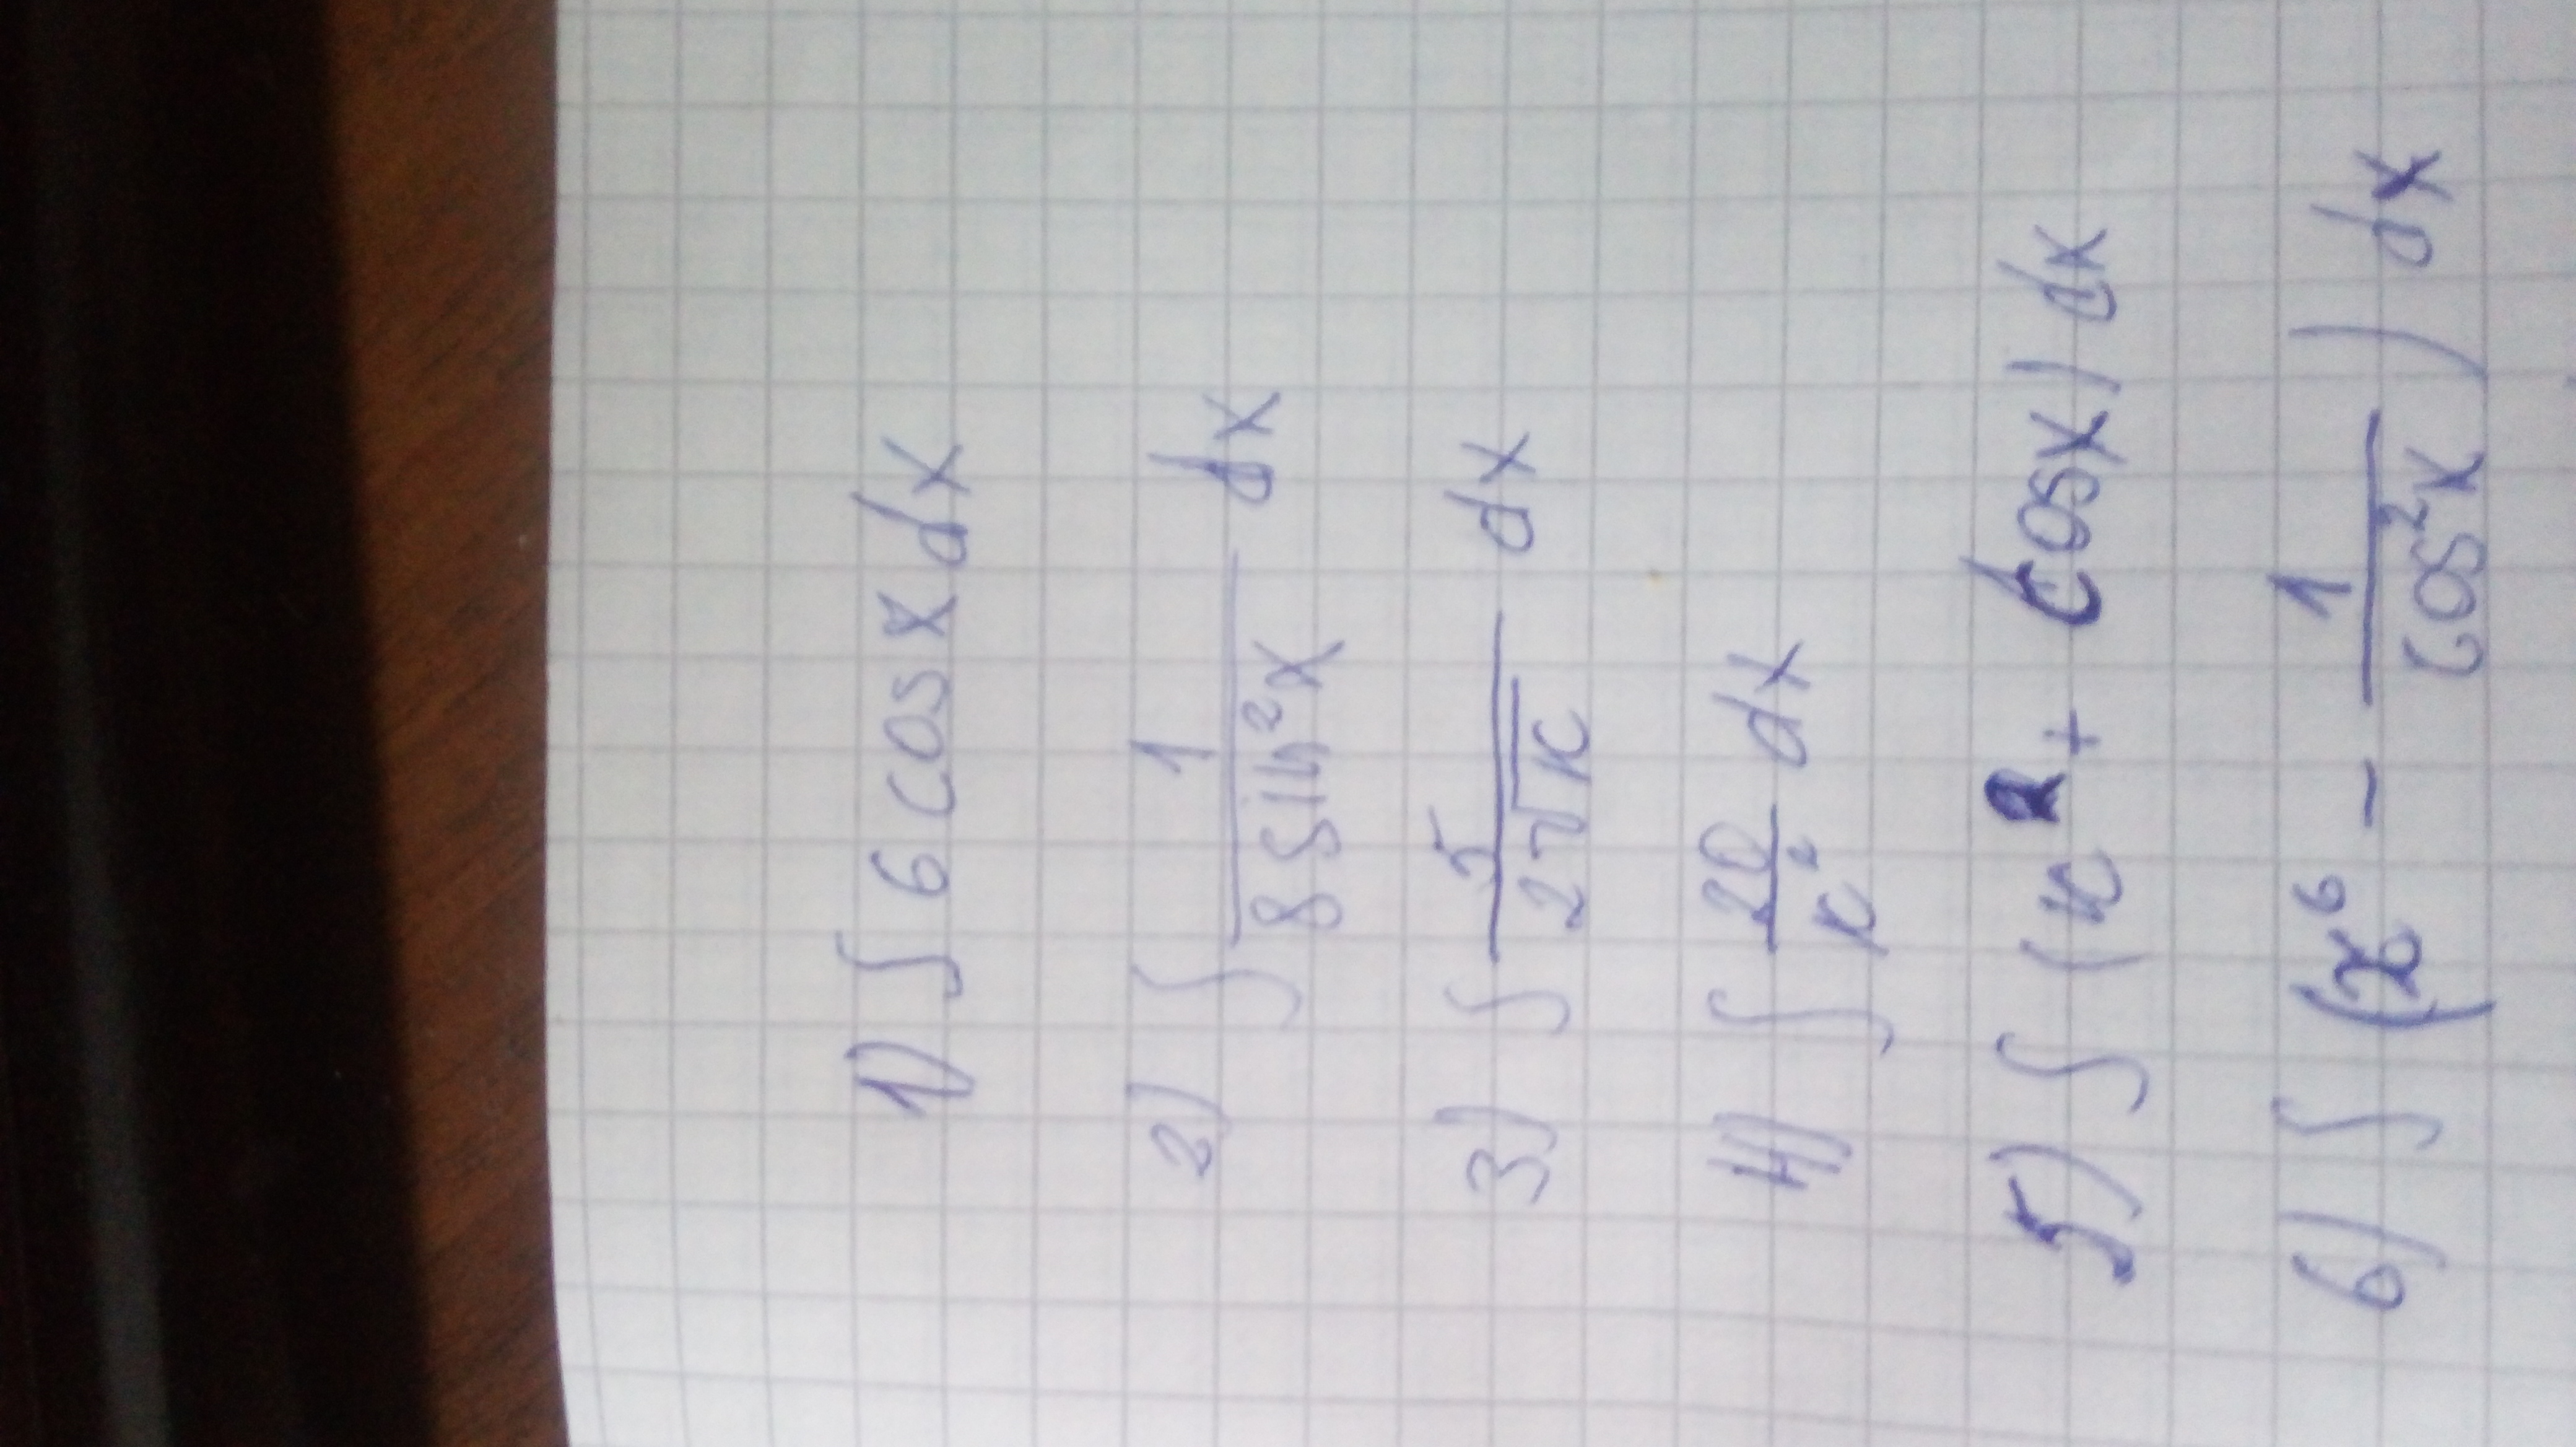 1) ∫ 6 cos x dx
2) ∫ 1/(8 sin²x) dx
3) ∫ 5/(2√x) dx
4) ∫ 20/x² dx
5) ∫ (x² + cos x) dx
6) ∫ (x⁶ - 1/(cos²x)) dx